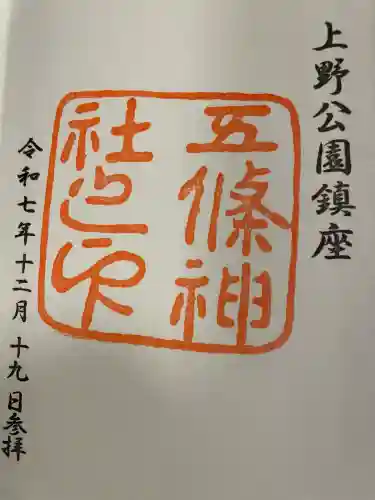 上野公園鎮座
五條神
社之印
令和七年十二月十九日参拝